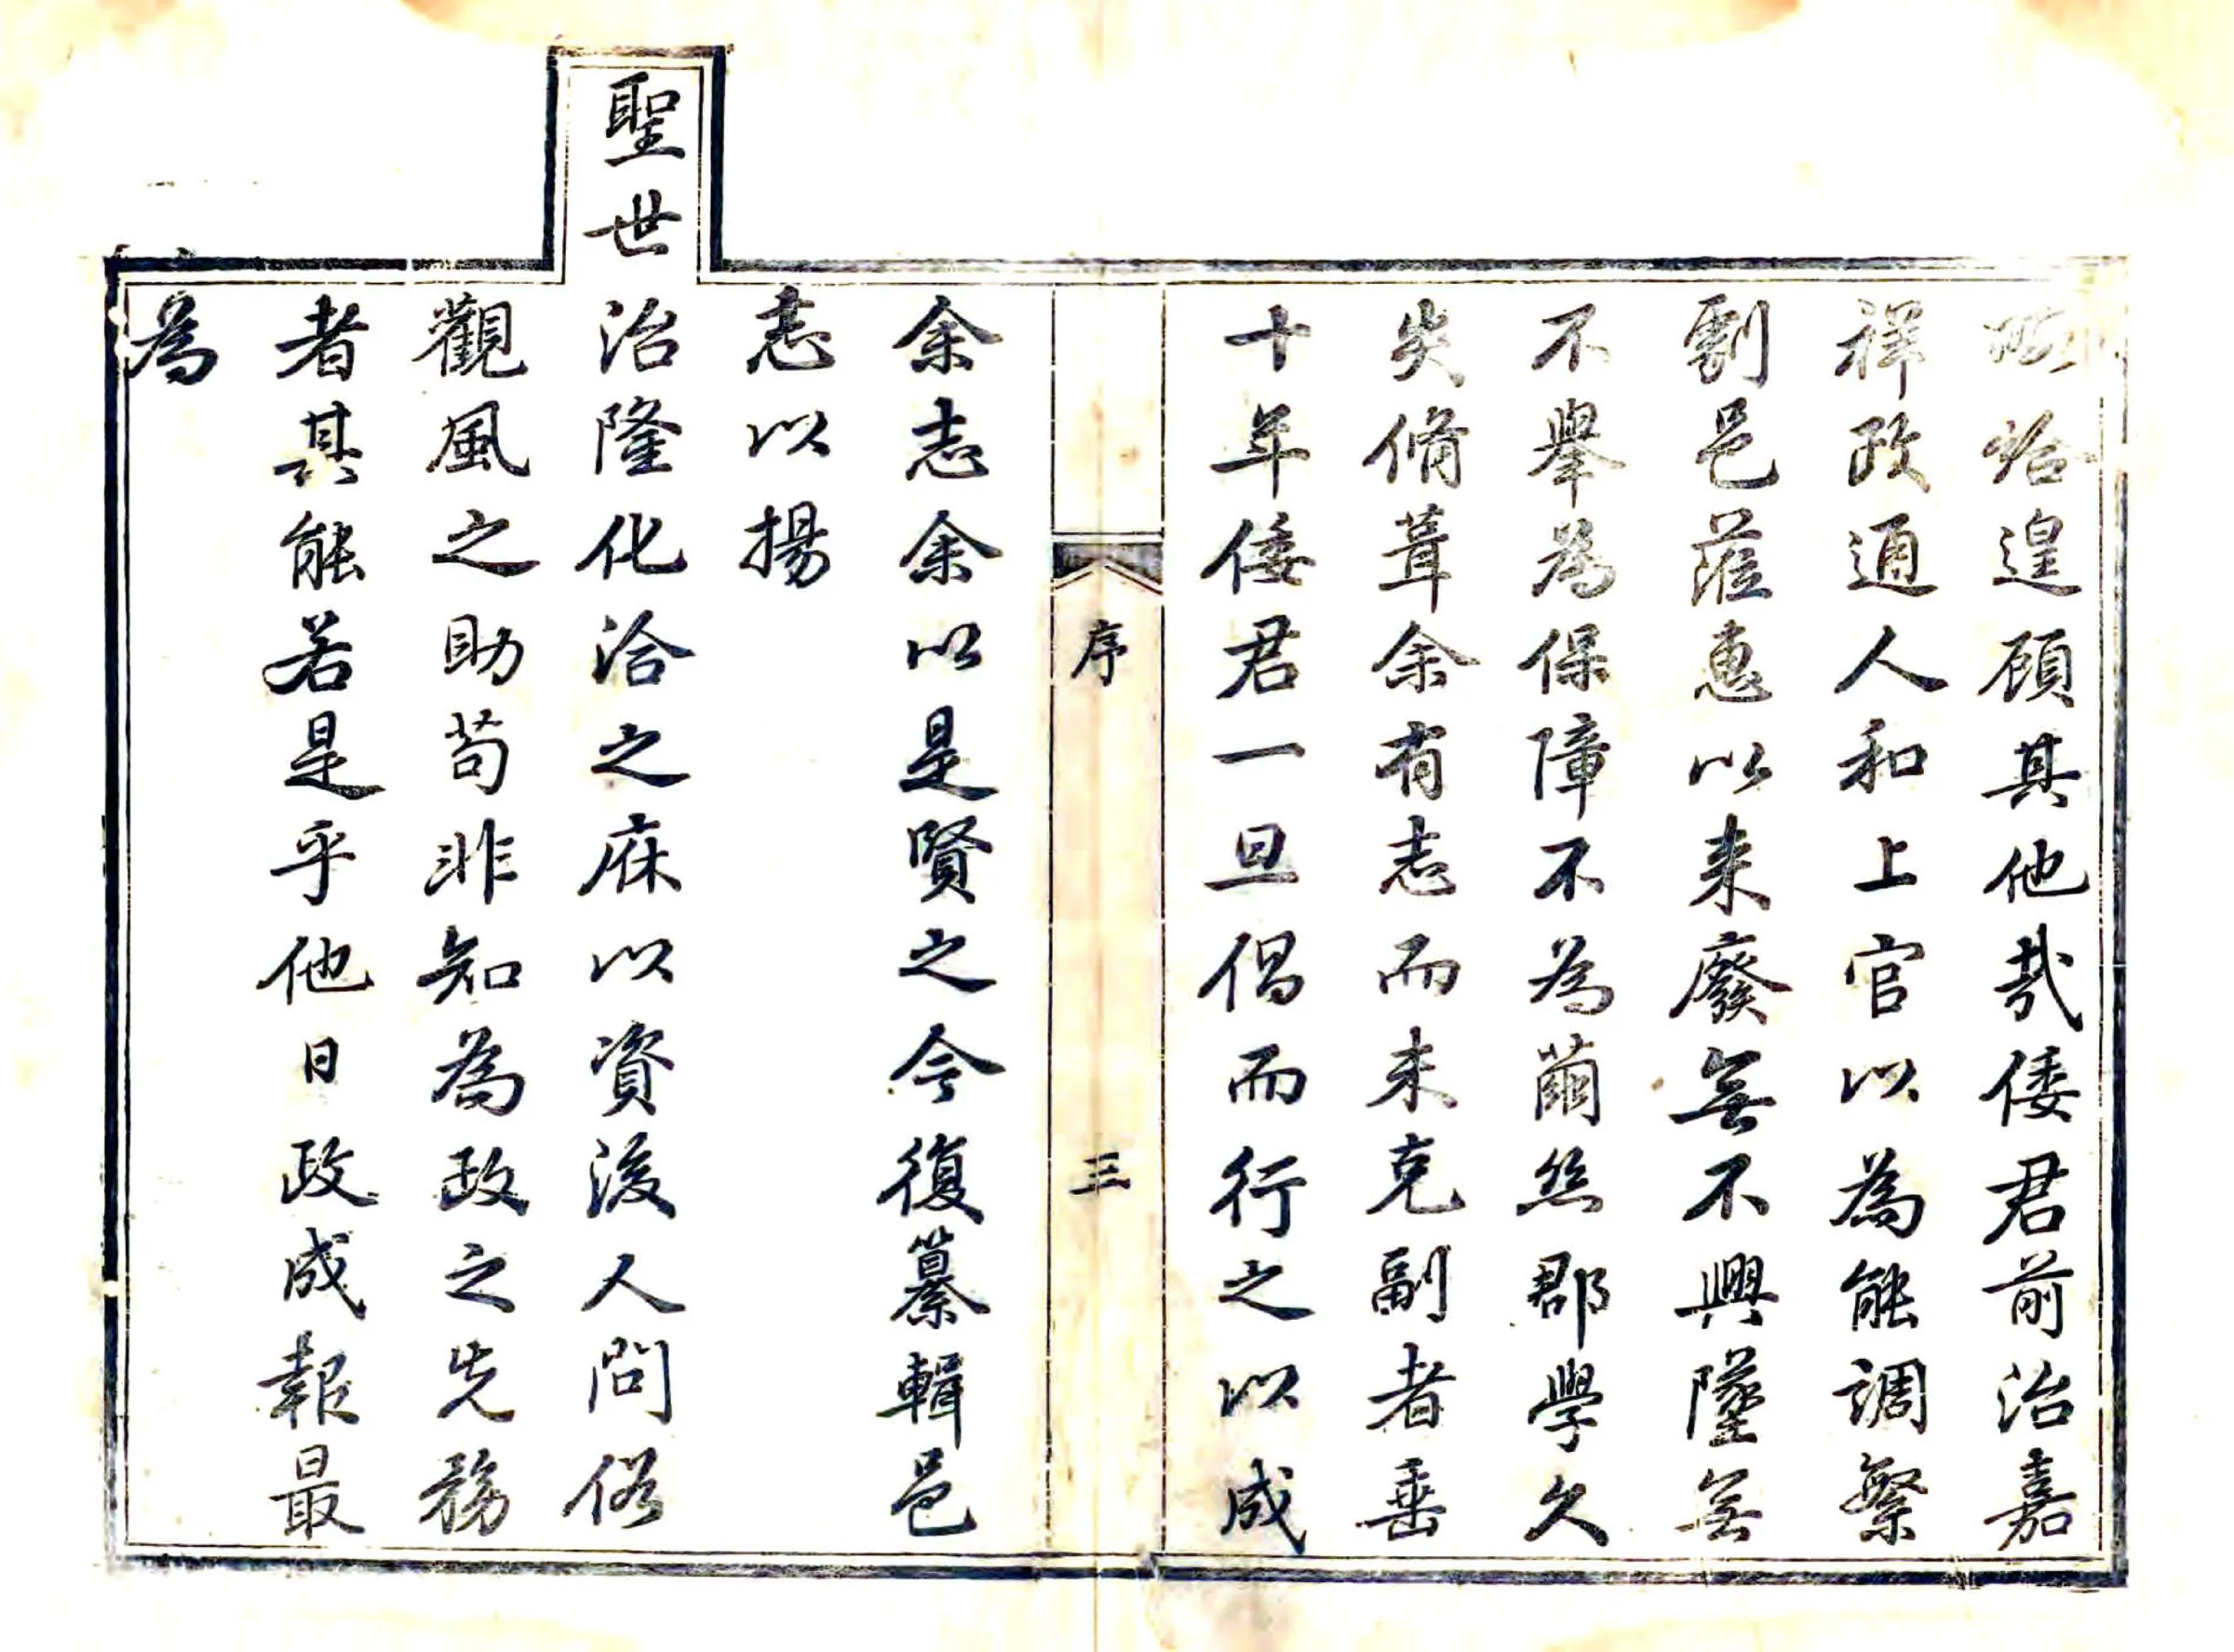 恰遑顧其他哉倭君前治嘉
祥政通人和上官以為能調繁
劇邑蒞惠以来廢無不興墜無
不舉為保障不為繭絲郡學久
失脩葺余有志而未克副者垂
十年倭君一旦倡而行之以成
序 三
余志余以是賢之今復纂輯邑
志以揚
聖世治隆化洽之庥以資後人問俗
觀風之助苟非知為政之先務
者其能若是乎他日政成報最
為